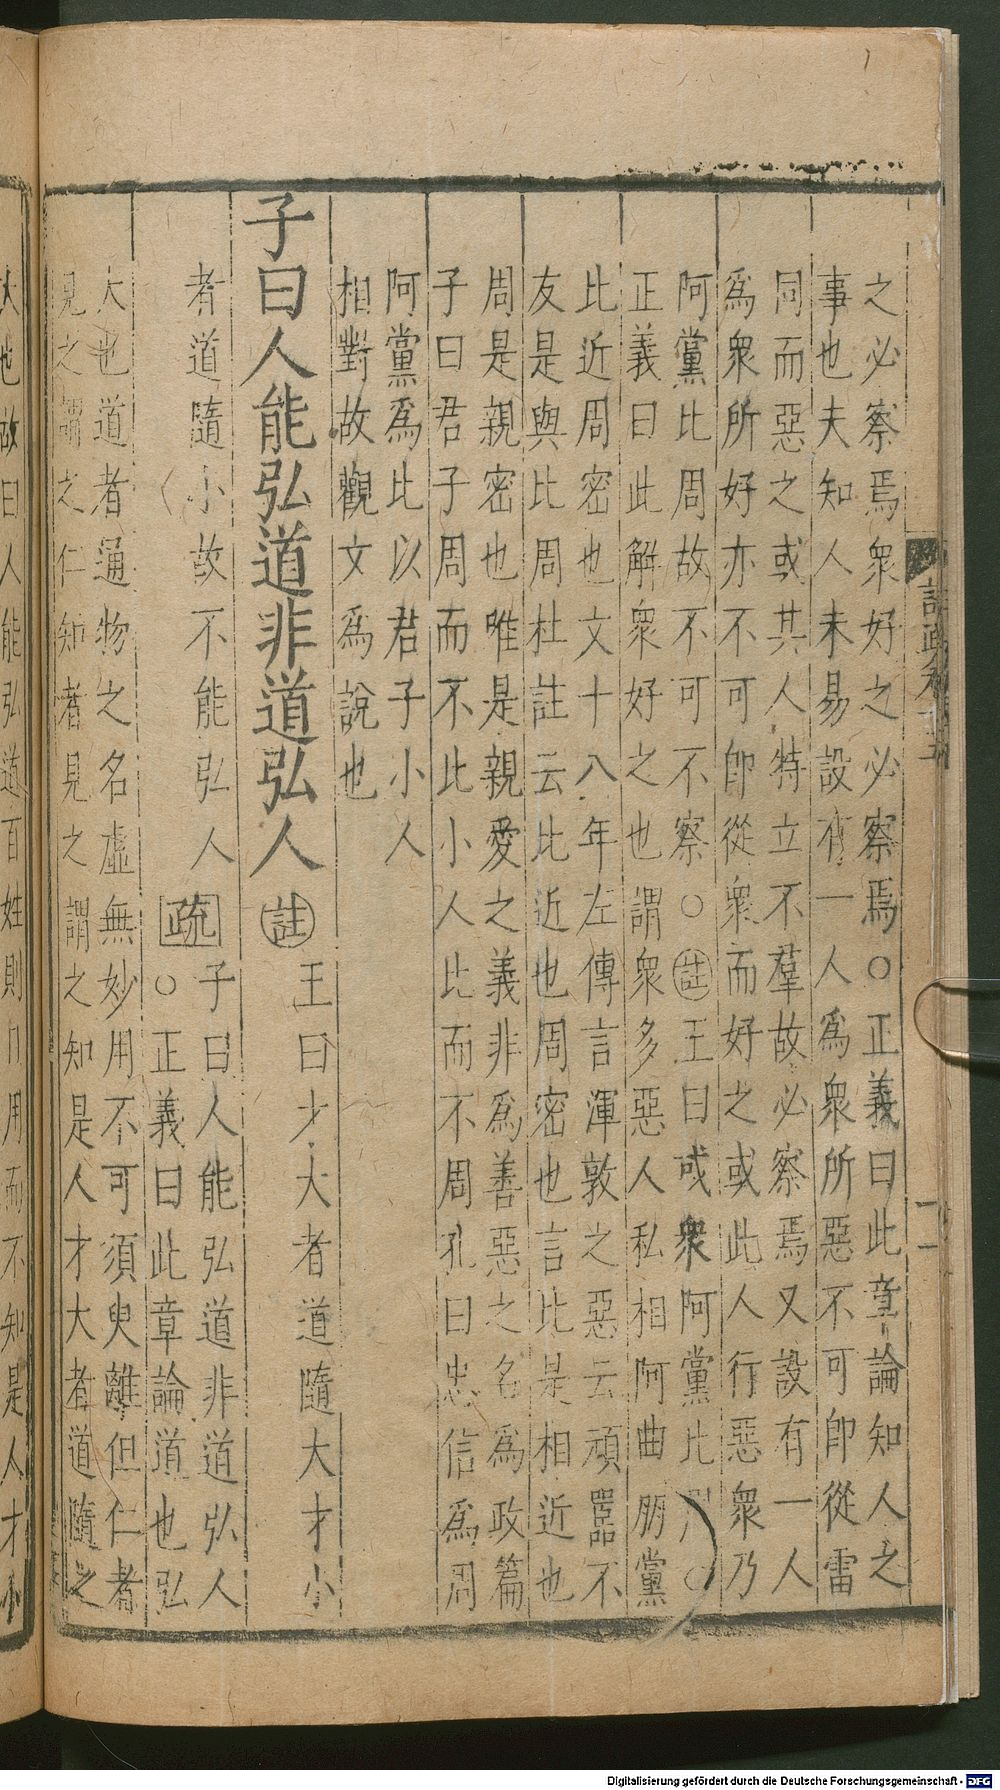 之必察焉衆好之必察焉○正義曰此章論知人之
事也夫知人未易設有一人爲衆所惡不可即從雷
同而惡之或其人特立不羣故必察焉又設有一人
爲衆所好亦不可即從衆而好之或此人行惡衆乃
阿黨比周故不可不察○註王曰或衆阿黨比周○
正義曰此解衆好之也謂衆多惡人私相阿曲朋黨
比近周密也文十八年左傳言渾敦之惡云頑嚚不
友是與比周杜註云比近也周密也言比是相近也
周是親密也唯是親愛之義非爲善惡之名爲政篇
子曰君子周而不比小人比而不周孔曰忠信爲周
阿黨爲比以君子小人
相對故觀文爲說也
子曰人能弘道非道弘人註王曰才大者道隨大才小
者道隨小故不能弘人疏子曰人能弘道非道弘人
○正義曰此章論道也弘
大也道者通物之名虛無妙用不可須臾離但仁者
見之謂之仁知者見之謂之知是人才大者道隨之
大也故曰人能弘道百姓則日用而不知是人才小
Digitalisierung gefördert durch die Deutsche Forschungsgemeinschaft - DFG